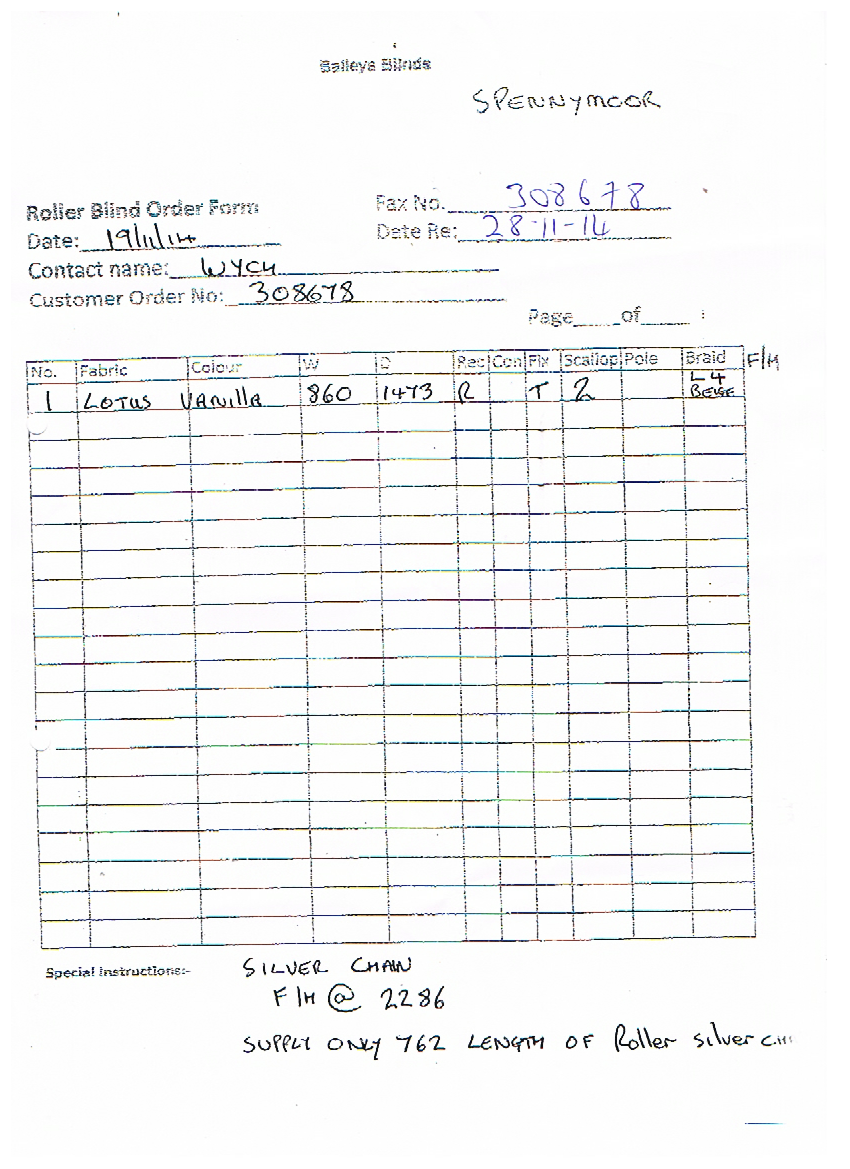 Baileys Blinds
SPENNYMOOR
Roller Blind Order Form
Fax No. 308678
Date: 19/11/14
Date Re: 28-11-14
Contact name: WYCH
Customer Order No: 308678
Page____of____
No. Fabric Colour W D Rec Con Fix Scallop Pole Braid F/H
1 LOTUS VANILLA 860 1473 R T 2 L4 BEIGE
Special Instructions:- SILVER CHAIN
F/H @ 2286
SUPPLY ONLY 762 LENGTH OF Roller silver